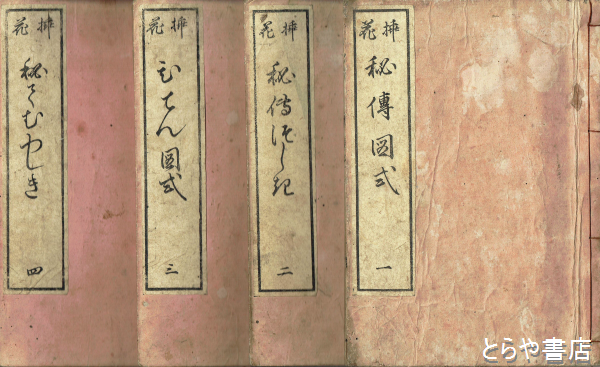 挿花
秘傳圖式
一
挿花
秘傳津しき
二
挿花
ひでん圖式
三
挿花
秘てむつしき
四
とらや書店